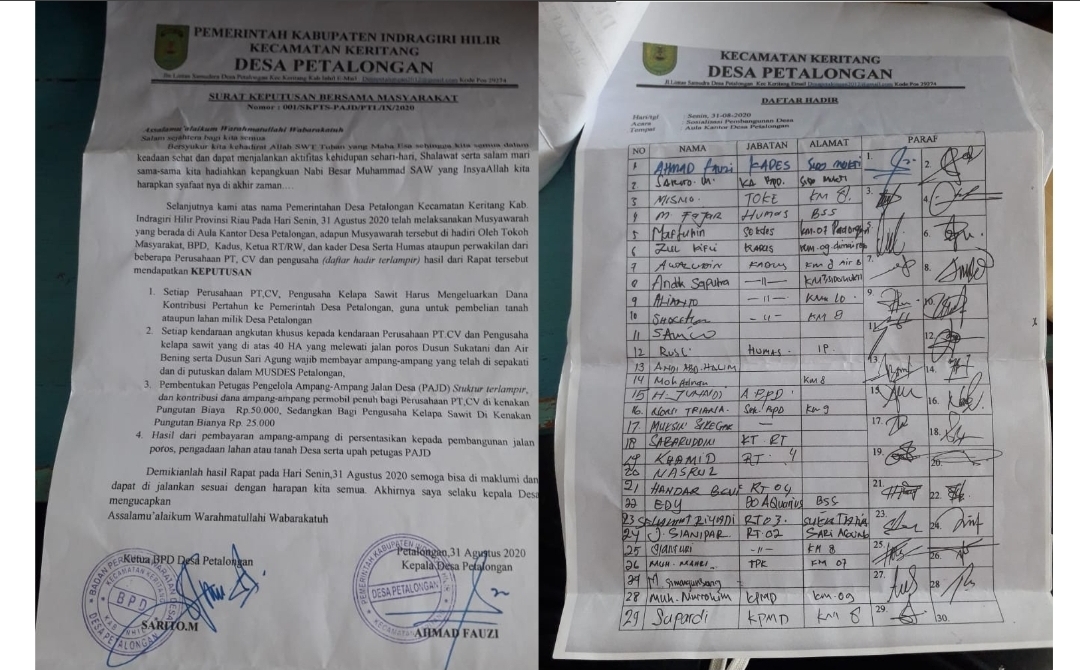 PEMERINTAH KABUPATEN INDRAGIRI HILIR
KECAMATAN KERITANG
DESA PETALONGAN
SURAT KEPUTUSAN BERSAMA MASYARAKAT
Nomor : 001/SKPTS-PAJD/PTL/IX/2020
Assalamu'alaikum Warahmatullahi Wabarakatuh
Salam sejahtera bagi kita semua
Bersyukur kita kehadirat Allah SWT Tuhan yang Maha Esa sehingga kita semua dalam
keadaan sehat dan dapat menjalankan aktifitas kehidupan sehari-hari, Shalawat serta salam mari
sama-sama kita hadiahkan kepangkuan Nabi Besar Muhammad SAW yang InsyaAllah kita
harapkan syafaat nya di akhir zaman....
Selanjutnya kami atas nama Pemerintahan Desa Petalongan Kecamatan Keritang Kab.
Indragiri Hilir Provinsi Riau Pada Hari Senin, 31 Agustus 2020 telah melaksanakan Musyawarah
yang berada di Aula Kantor Desa Petalongan, adapun Musyawarah tersebut di hadiri Oleh Tokoh
Masyarakat, BPD, Kadus, Ketua RT/RW, dan kader Desa Serta Humas ataupun perwakilan dari
beberapa Perusahaan PT, CV dan pengusaha (daftar hadir terlampir) hasil dari Rapat tersebut
mendapatkan KEPUTUSAN
1. Setiap Perusahaan PT,CV, Pengusaha Kelapa Sawit Harus Mengeluarkan Dana
Kontribusi Pertahun ke Pemerintah Desa Petalongan, guna untuk pembelian tanah
ataupun lahan milik Desa Petalongan
2. Setiap kendaraan angkutan khusus kepada kendaraan Perusahaan PT.CV dan Pengusaha
kelapa sawit yang di atas 40 HA yang melewati jalan poros Dusun Sukatani dan Air
Bening serta Dusun Sari Agung wajib membayar ampang-ampang yang telah di sepakati
dan di putuskan dalam MUSDES Petalongan,
3. Pembentukan Petugas Pengelola Ampang-Ampang Jalan Desa (PAJD) Sruktur terlampir,
dan kontribusi dana ampang-ampang permobil penuh bagi Perusahaan PT,CV di kenakan
Pungutan Biaya Rp.50.000, Sedangkan Bagi Pengusaha Kelapa Sawit Di Kenakan
Pungutan Bianya Rp. 25.000
4. Hasil dari pembayaran ampang-ampang di persentasikan kepada pembangunan jalan
poros, pengadaan lahan atau tanah Desa serta upah petugas PAJD
Demikianlah hasil Rapat pada Hari Senin,31 Agustus 2020 semoga bisa di maklumi dan
dapat di jalankan sesuai dengan harapan kita semua. Akhirnya saya selaku kepala Desa
mengucapkan
Assalamu'alaikum Warahmatullahi Wabarakatuh
Petalongan,31 Agustus 2020
Ketua BPD Desa Petalongan
Kepala Desa Petalongan
BPD
DESA PETALONGAN
SARITO.M
AHMAD FAUZI
KECAMATAN KERITANG
DESA PETALONGAN
DAFTAR HADIR
Hari/tgl : Senin, 31-08-2020
Acara : Sosialisasi Pembangunan Desa
Tempat : Aula Kantor Desa Petalongan
NO NAMA JABATAN ALAMAT PARAF
1 AHMAD Fauzi KADES 1.
2 2.
3 MISMO. TOKE KM 8. 3.
4 M Fajar Humas BSS 4.
5 Sekdes 5.
6 Zul KADUS 6.
7 KADUS 7.
8 Andik Saputra —11— 8.
9 ALIANTO —11— KM 10. 9.
10 —11— KM 8 10.
11 11.
12 Rusli HUMAS. IP. 12.
13 ANDI ABD. HALIM 13.
14 KM 8 14.
15 H. JUNAIDI A BPD 15.
16. NONI TRIANA. Sek. BPD KM 9 16.
17 MUKSIN SIREGAR 17.
18 SABARUDDIN KT RT 18.
19 KHAMID RT. 4 19.
20 NASRUL 20.
21 HANDAR RT 04 21.
22 EDY BSS 22.
23 SELAMAT RIYADI RT 03. 23.
24 J. SIANIPAR. RT 02 SARI AGUNG 24.
25 —11— KM 8 25.
26 MUH. TPK KM 07 26.
27 M. Simangunsang 27.
28 Muh. Nurrohim KPMD KM. 09 28
29 Supardi KPMD KM 8 29.
30.